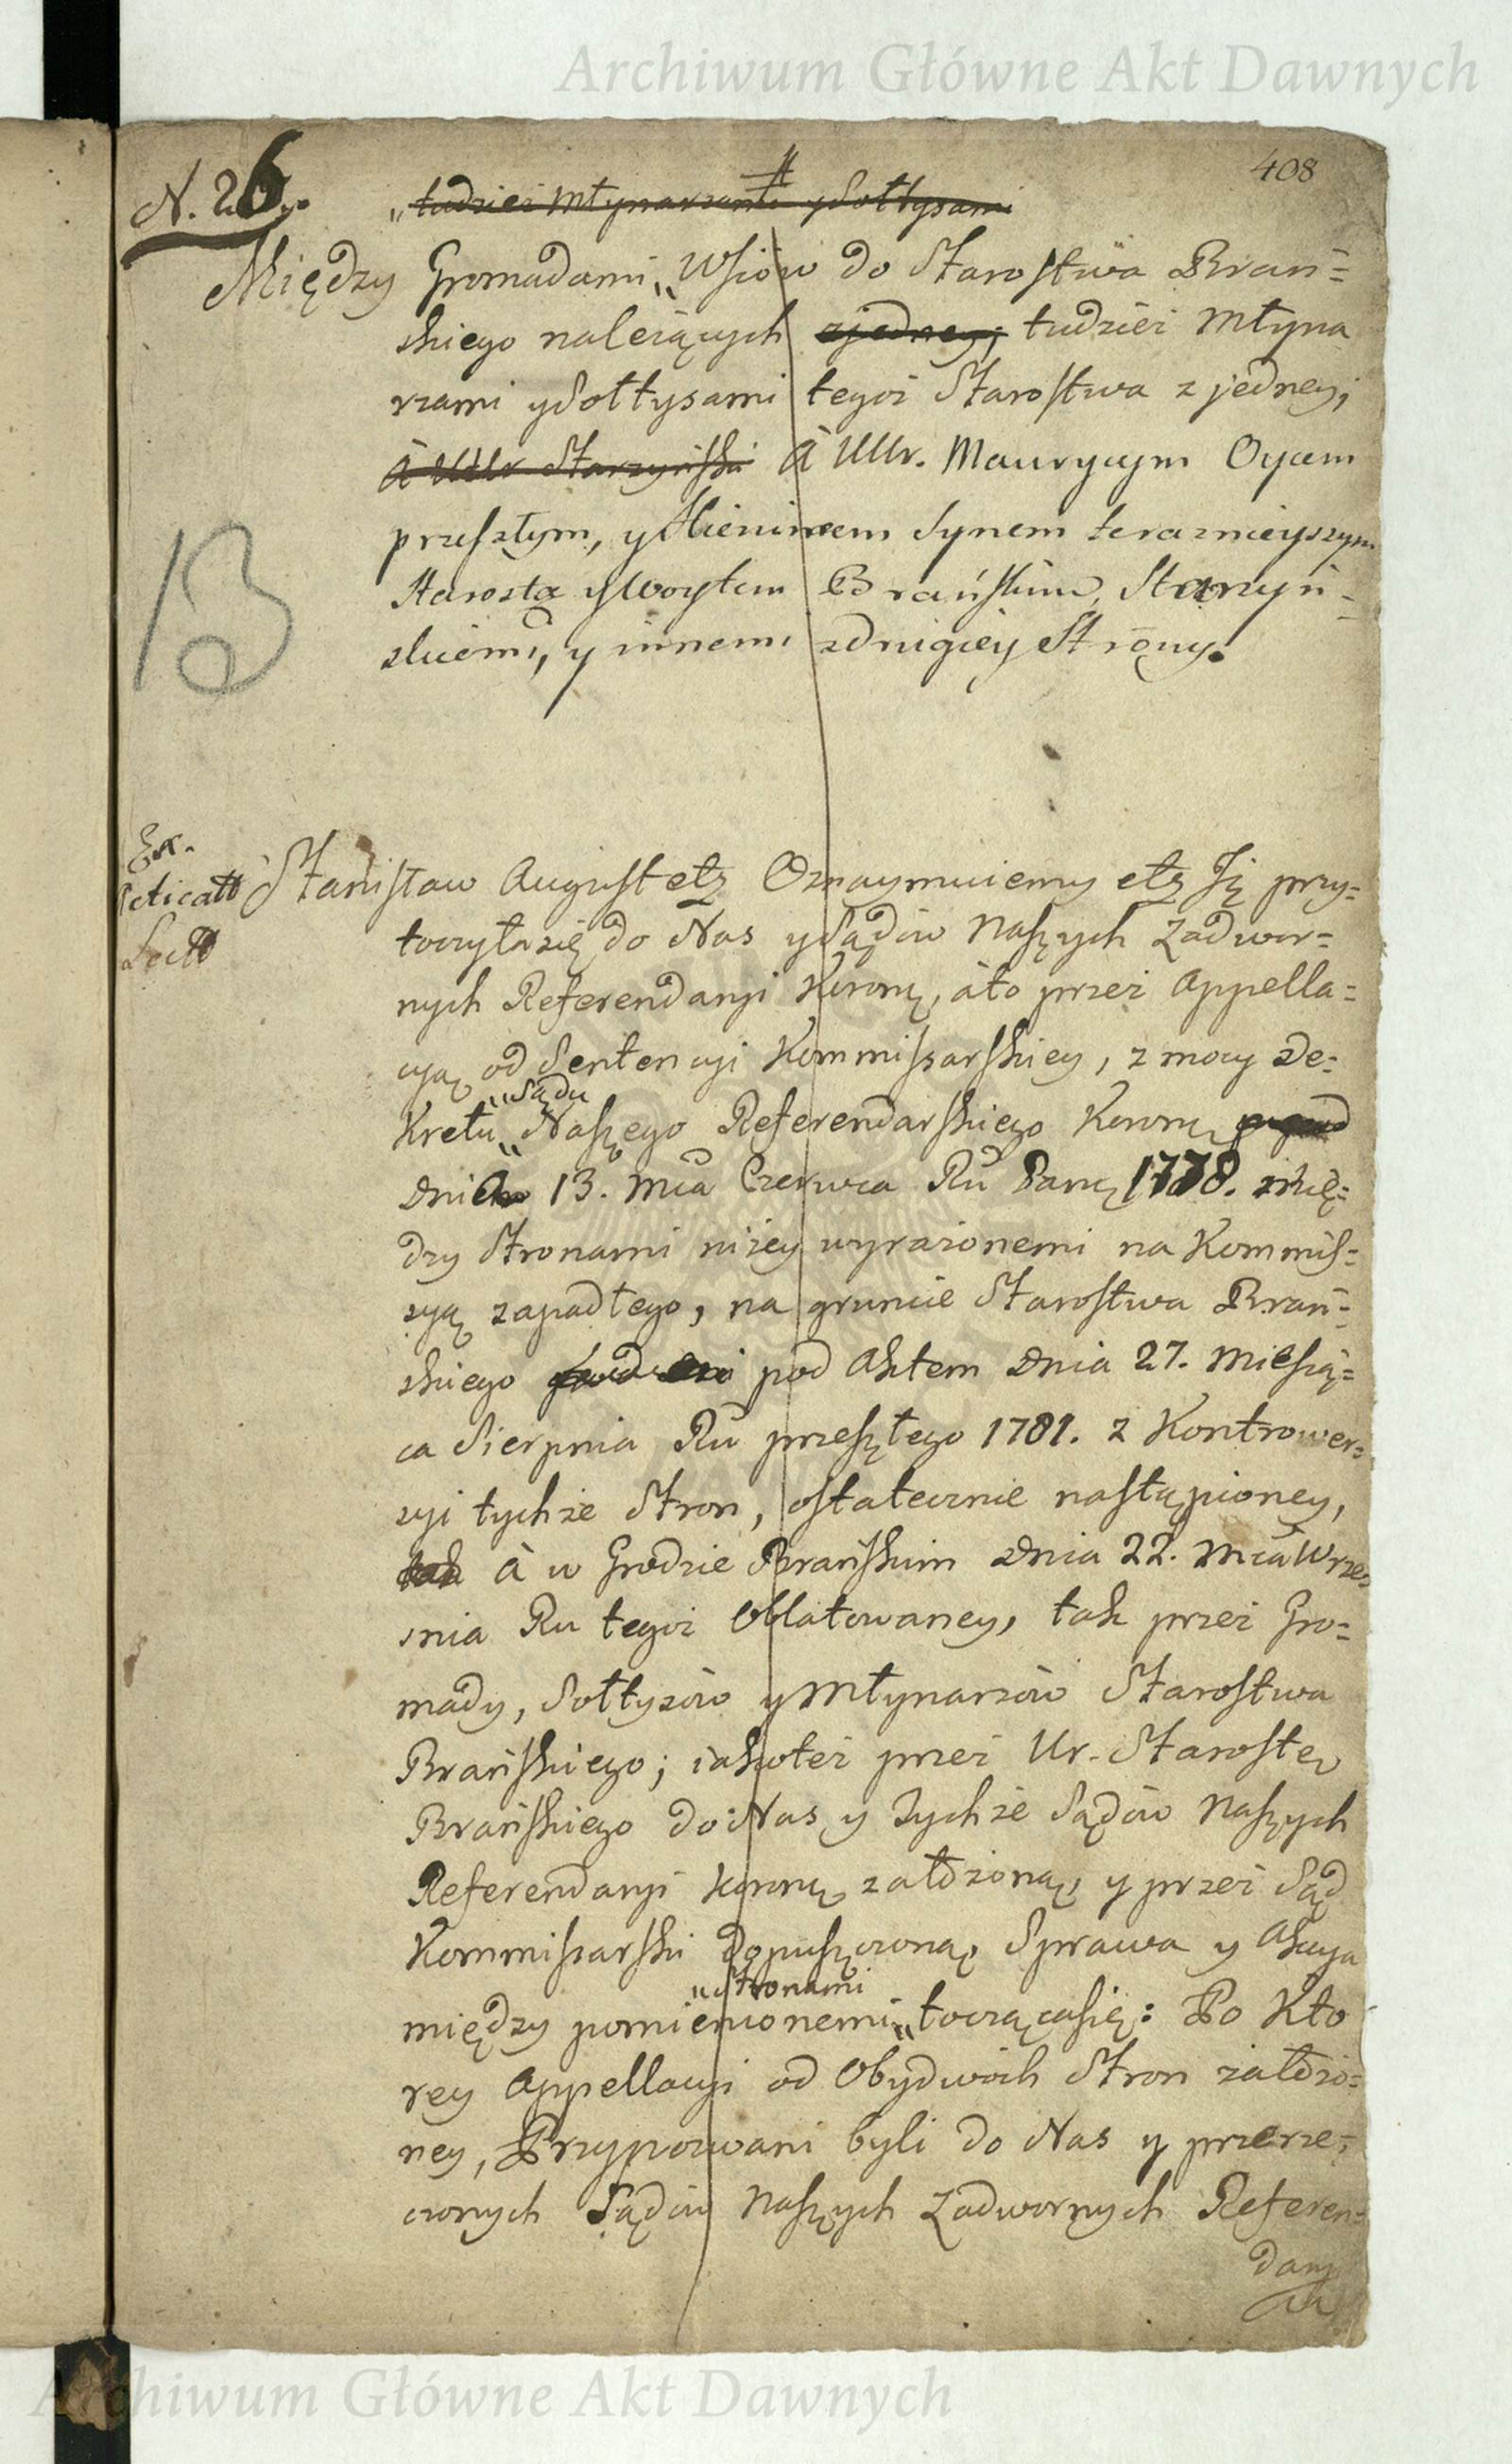 Archiwum Główne Akt Dawnych
408
N. 26.
„tudzież Młynarzami y Sołtysami
Między Gromadami „ Wsiów do Starostwa Brań=
skiego należących zjedney; tudzież Młyna
rzami y Sołtysami tegoż Starostwa z jedney;
à UUr Starzyński à UUr. Maurycym Oycem
przeszłym, y Synem teraznieyszym
Starostą y Woytem Brańskim, Starzyń=
skiemi, y innemi z drugiey Strony.
13
Ex.
Lect
Stanisław August etz Oznaymuiemy etz Iż przy=
toczyła się do Nas y Sądów Naszych Zadwor=
nych Referendaryi Koronny, àto przez Appella=
cyą od Sentencyi Kommissarskiey, z mocy De=
„Sądu
Kretu „ Naszego Referendarskiego Koronny
Dnia 13. Mca Czerwca Ru Pans 1778. mię=
dzy Stronami niżey wyrażonemi na Kommis=
syą zapadłego, na gruncie Starostwa Brań=
skiego pod Aktem Dnia 27. Miesią=
ca Sierpnia Ru przeszłego 1781. z Kontrower=
syi tychże Stron, ostatecznie nastąpioney,
tak à w Grodzie Brańskim Dnia 22. Mca Wrze
snia Ru tegoż Oblatowaney, tak przez Gro=
mady, Sołtysów y Młynarzów Starostwa
Brańskiego; iakoteż przez Ur. Starostę
Brańskiego do Nas y Tychże Sądów Naszych
Referendaryi Koronny założoną, y przez Sąd
Kommissarski dopuszczoną, Sprawa y Akcya
„Stronami
między pomienionemi „ tocząca się: Po Kto
rey Appellacyi od Obydwóch Stron założo=
ney, Przypozwani byli do Nas y przerze=
czonych Sądów Naszych Zadwornych Referen=
dary
Archiwum Główne Akt Dawnych